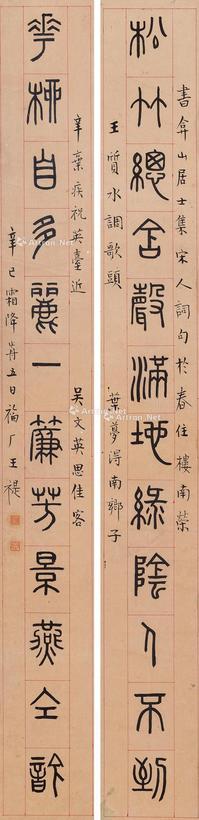 書弇山居士集宋人詞句於春住樓南榮
松竹總含聲滿地綠陰人不到
王質水調歌頭 葉夢得南鄉子
辛棄疾祝英臺近 吳文英思佳客
花柳自多麗一簾芳景燕仝訡
辛巳霜降歬五日福厂王禔